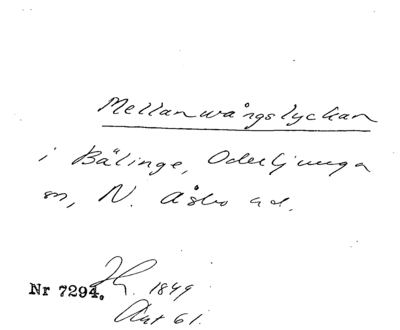 Mellanwångslyckan
i Bälinge, Oderljunga
sn, N. Åsbo hd.
Nr 7294. 1849
Akt 61.